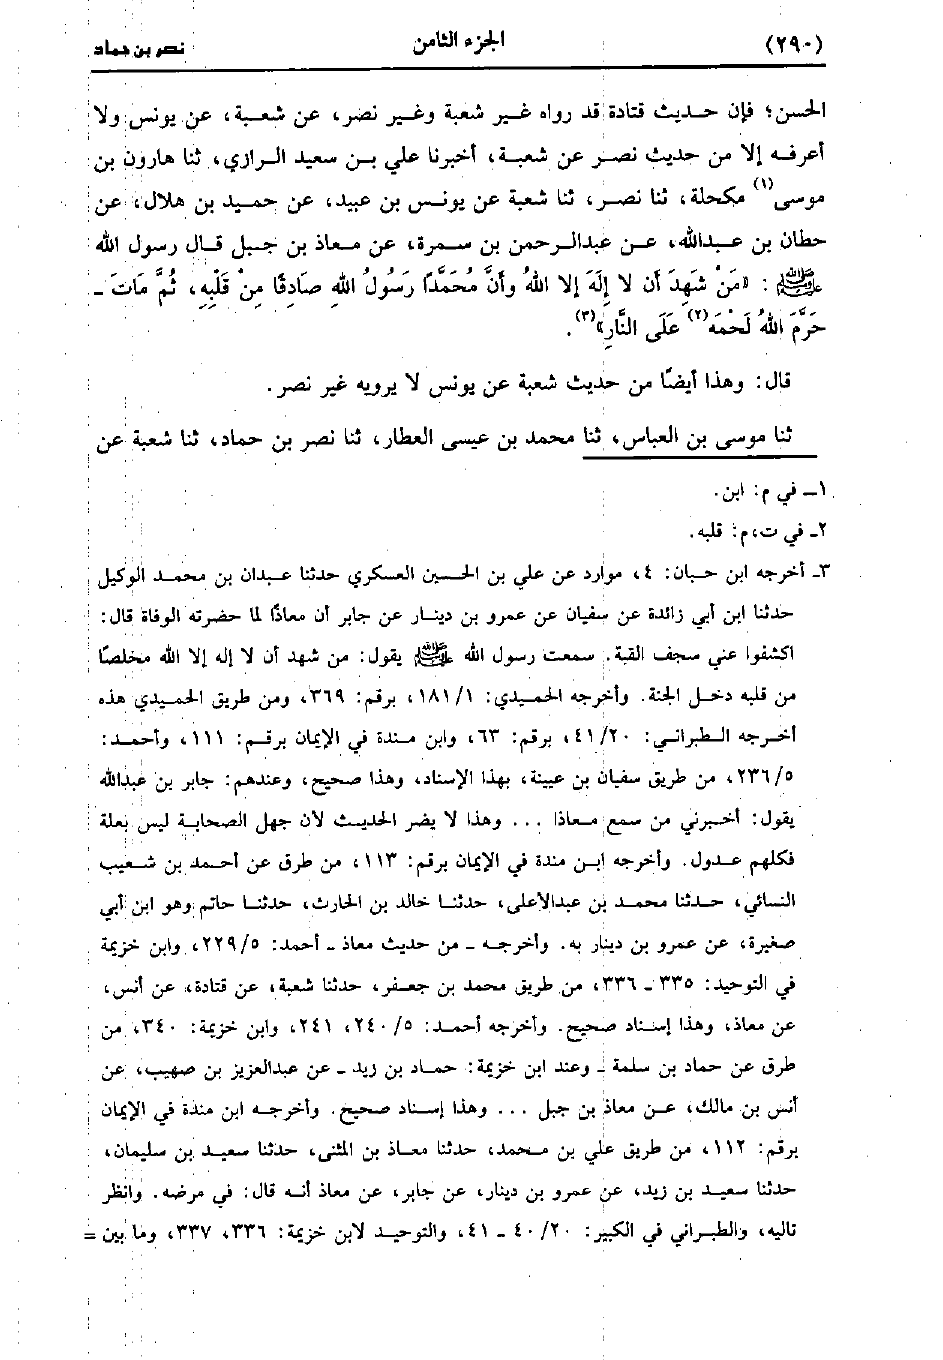 (٢٩٠) الجزء الثامن نصر بن حماد
الحسن؛ فإن حديث قتادة قد رواه غير شعبة وغير نصر، عن شعبة، عن يونس ولا
أعرفه إلا من حديث نصر عن شعبة، أخبرنا علي بن سعيد الرازي، ثنا هارون بن
موسى(١) مكحلة، ثنا نصر، ثنا شعبة عن يونس بن عبيد، عن حميد بن هلال، عن
حطان بن عبدالله، عن عبدالرحمن بن سمرة، عن معاذ بن جبل قال رسول الله
ﷺ: «مَنْ شَهِدَ أن لا إِلَهَ إلا اللهُ وأنَّ مُحَمَّدًا رَسُولُ اللهِ صَادِقًا مِنْ قَلْبِهِ، ثُمَّ مَاتَ ـ
حَرَّمَ اللهُ لَحْمَهُ(٢) عَلَى النَّارِ»(٣).
قال: وهذا أيضًا من حديث شعبة عن يونس لا يرويه غير نصر.
ثنا موسى بن العباس، ثنا محمد بن عيسى العطار، ثنا نصر بن حماد، ثنا شعبة عن
١ـ في م: ابن.
٢ـ في ت،م: قلبه.
٣ـ أخرجه ابن حبان: ٤، موارد عن علي بن الحسين العسكري حدثنا عبدان بن محمد الوكيل
حدثنا ابن أبي زائدة عن سفيان عن عمرو بن دينار عن جابر أن معاذًا لما حضرته الوفاة قال:
اكشفوا عني سجف القبة. سمعت رسول الله ﷺ يقول: من شهد أن لا إله إلا الله مخلصًا
من قلبه دخل الجنة. وأخرجه الحميدي: ١٨١/١، برقم: ٣٦٩، ومن طريق الحميدي هذه
أخرجه الطبراني: ٤١/٢٠، برقم: ٦٣، وابن مندة في الإيمان برقم: ١١١، وأحمد:
٢٣٦/٥، من طريق سفيان بن عيينة، بهذا الإسناد، وهذا صحيح، وعندهم: جابر بن عبدالله
يقول: أخبرني من سمع معاذا ... وهذا لا يضر الحديث لأن جهل الصحابة ليس بعلة
فكلهم عدول. وأخرجه ابن مندة في الإيمان برقم: ١١٣، من طرق عن أحمد بن شعيب
النسائي، حدثنا محمد بن عبدالأعلى، حدثنا خالد بن الحارث، حدثنا حاتم وهو ابن أبي
صغيرة، عن عمرو بن دينار به. وأخرجه ـ من حديث معاذ ـ أحمد: ٢٢٩/٥، وابن خزيمة
في التوحيد: ٣٣٥ ـ ٣٣٦، من طريق محمد بن جعفر، حدثنا شعبة، عن قتادة، عن أنس،
عن معاذ، وهذا إسناد صحيح. وأخرجه أحمد: ٢٤٠/٥، ٢٤١، وابن خزيمة: ٣٤٠، من
طرق عن حماد بن سلمة ـ وعند ابن خزيمة: حماد بن زيد ـ عن عبدالعزيز بن صهيب، عن
أنس بن مالك، عن معاذ بن جبل ... وهذا إسناد صحيح. وأخرجه ابن مندة في الإيمان
برقم: ١١٢، من طريق علي بن محمد، حدثنا معاذ بن المثنى، حدثنا سعيد بن سليمان،
حدثنا سعيد بن زيد، عن عمرو بن دينار، عن جابر، عن معاذ أنه قال: في مرضه. وانظر
تاليه، والطبراني في الكبير: ٤٠/٢٠ ـ ٤١، والتوحيد لابن خزيمة: ٣٣٦، ٣٣٧، وما بين =